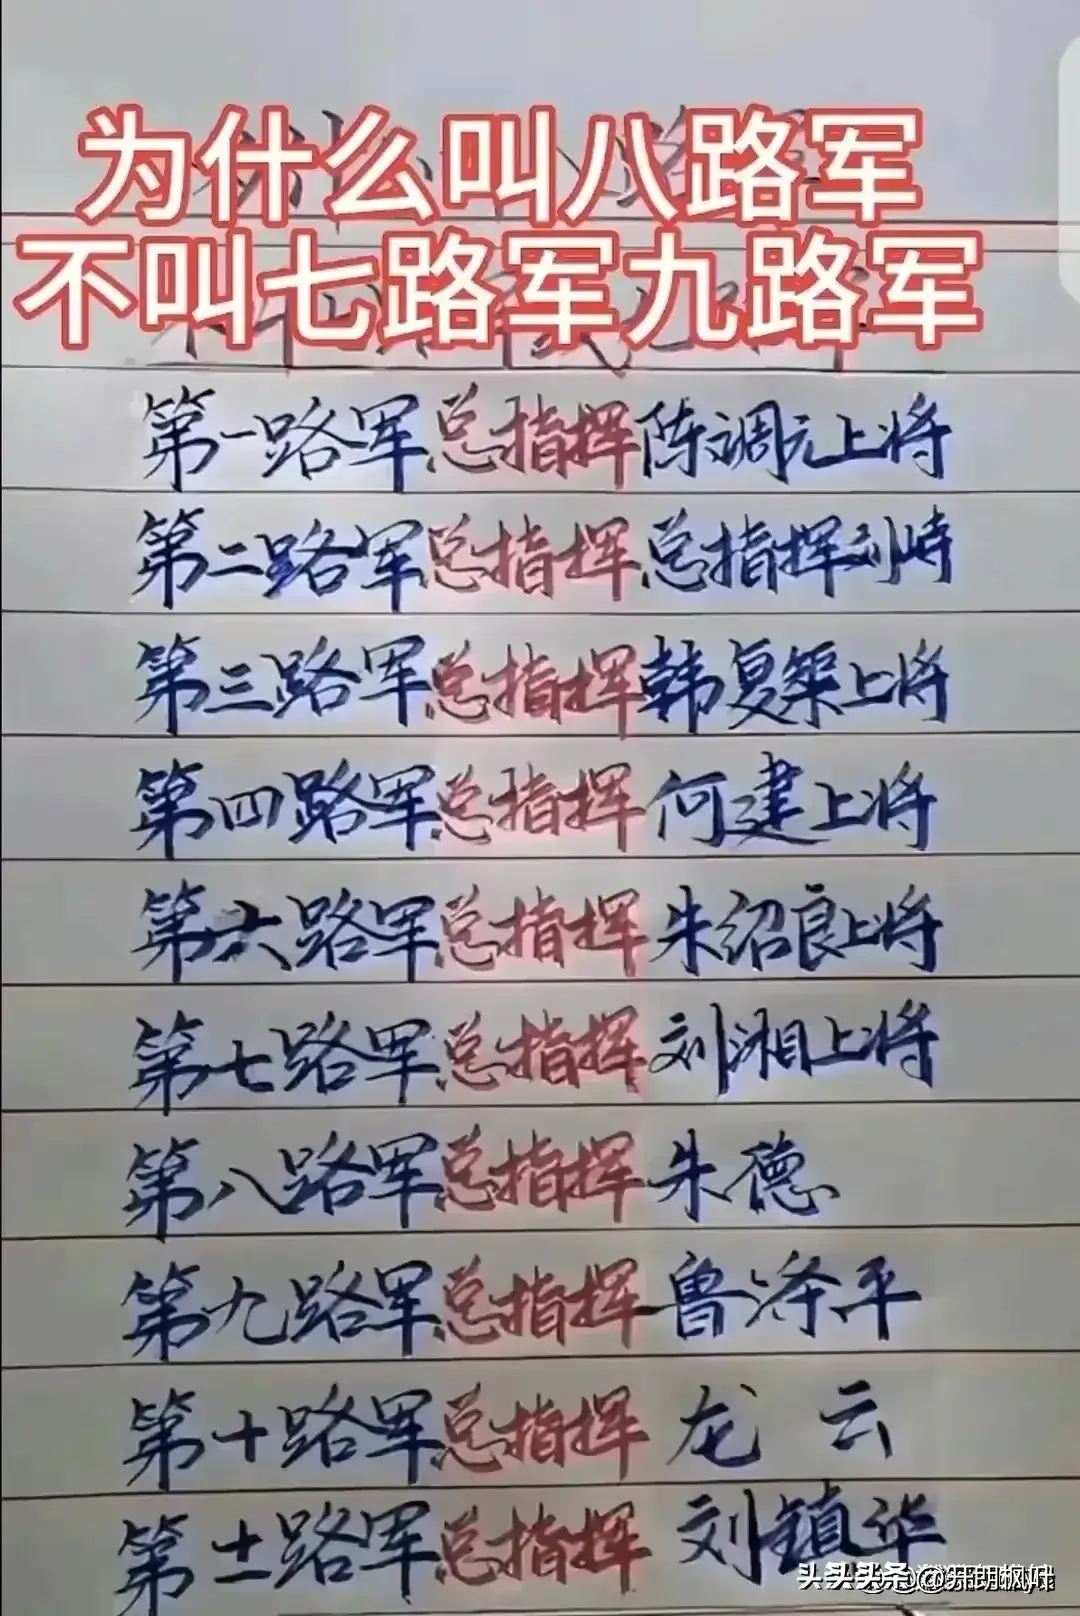 为什么叫八路军
不叫七路军九路军
第一路军总指挥陈调元上将
第二路军总指挥总指挥刘峙
第三路军总指挥韩复榘上将
第四路军总指挥何建上将
第六路军总指挥朱绍良上将
第七路军总指挥刘湘上将
第八路军总指挥朱德
第九路军总指挥鲁涤平
第十路军总指挥龙云
第十一路军总指挥刘镇华
头条 @开朗枫叶